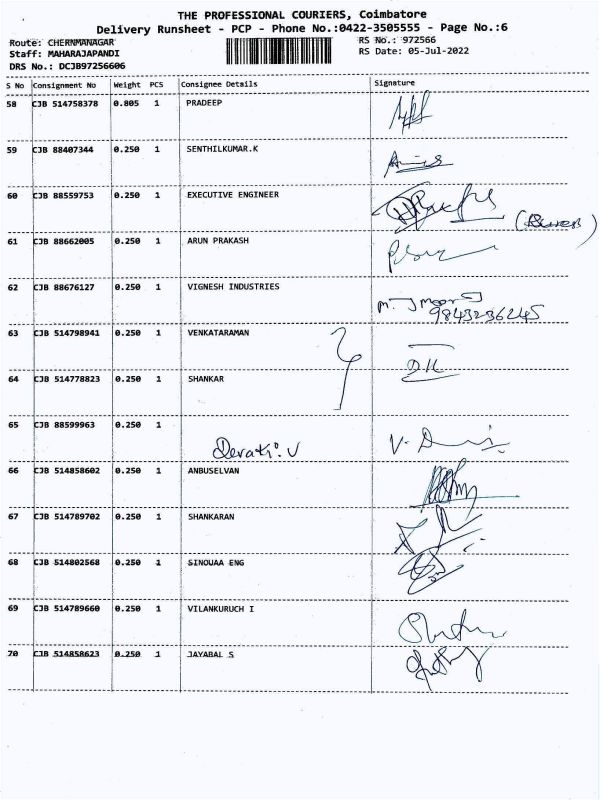 THE PROFESSIONAL COURIERS, Coimbatore
Delivery Runsheet - PCP - Phone No.:0422-3505555 - Page No.:6
Route: CHERNMANAGAR RS No.: 972566
Staff: MAHARAJAPANDI RS Date: 05-Jul-2022
DRS No.: DCJB97256606
S No Consignment No Weight PCS Consignee Details Signature
58 CJB 514758378 0.805 1 PRADEEP
59 CJB 88407344 0.250 1 SENTHILKUMAR.K
60 CJB 88559753 0.250 1 EXECUTIVE ENGINEER
61 CJB 88662005 0.250 1 ARUN PRAKASH
62 CJB 88676127 0.250 1 VIGNESH INDUSTRIES
9843236245
63 CJB 514798941 0.250 1 VENKATARAMAN
64 CJB 514778823 0.250 1 SHANKAR
65 CJB 88599963 0.250 1
Devaki. V
66 CJB 514858602 0.250 1 ANBUSELVAN
67 CJB 514789702 0.250 1 SHANKARAN
68 CJB 514802568 0.250 1 SINOUAA ENG
69 CJB 514789660 0.250 1 VILANKURUCH I
70 CJB 514858623 0.250 1 JAYABAL S